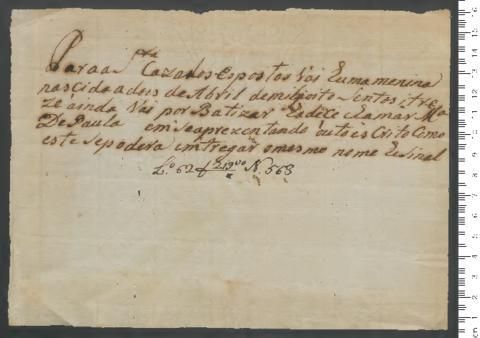 Para a S.ta Caza dos Espostos Vai Euma menina
nascida a dois de Abril de mil oito sentos, e tre
ze ainda Vai por Batizar Eadece clamar Ma
De Paula em se aprezentando outo es Crito Como
este se podera emtregar o mesmo nome E sinal
L.º 62 f 219 N. 563